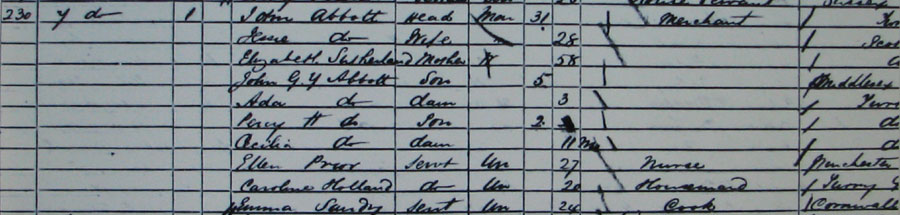 230 y do 1 John Abbott Head Mar 31 Merchant
Jesse do Wife 28
Elizabeth Sutherland Mother W 58
John G Y Abbott Son 5 Middlesex
Ada do daur 3
Percy H do Son 2 do
Cecilia do daur 11 Mo
Ellen Prior Servt Un 27 Nurse
Caroline Holland do Un 20 Housemaid
Emma Sandy Servt Un 24 Cook Cornwall